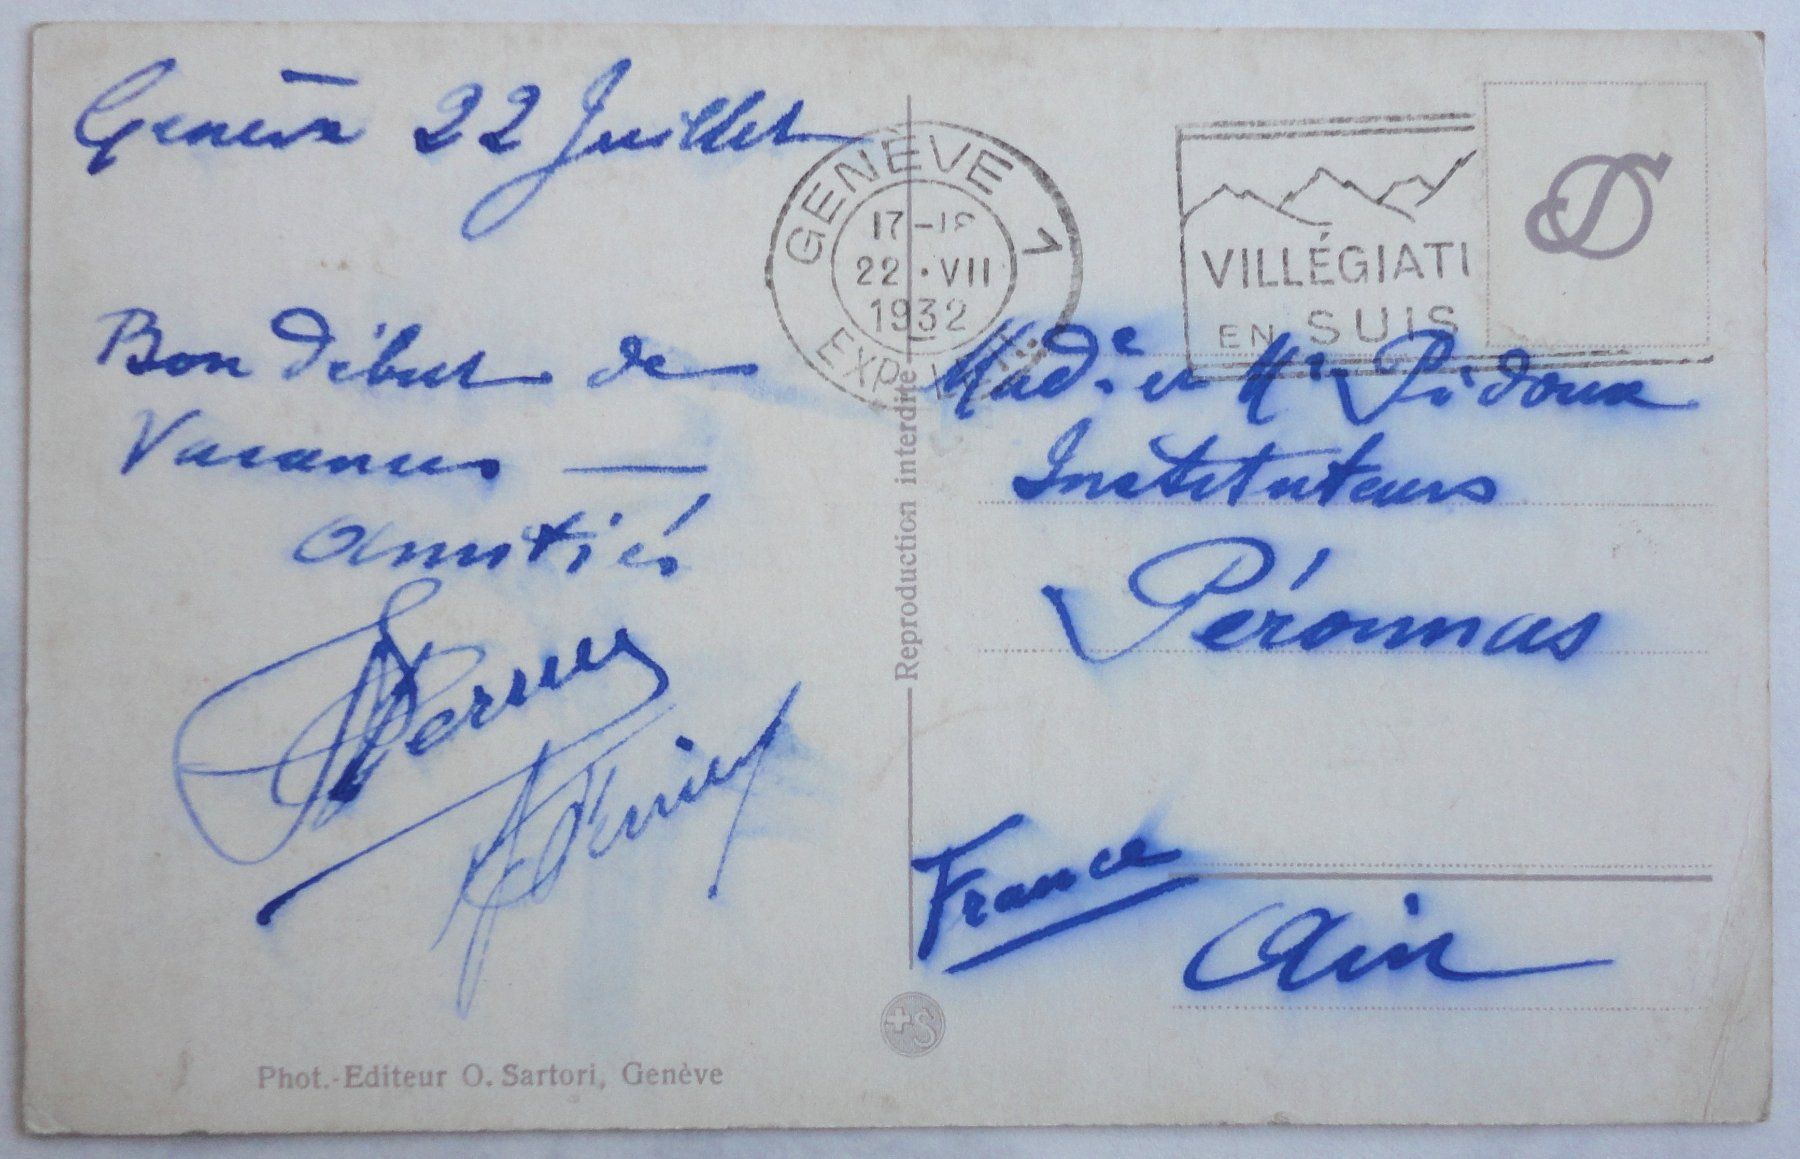 Genève 22 Juillet
Bon début de
Vacances —
amitiés
GENÈVE 1
17-18
22·VII
1932
EXP.
VILLÉGIATI
EN SUIS
Made et Mr Pidoux
Instituteurs
Péronnas
France
Ain
Reproduction interdite
Phot.-Editeur O. Sartori, Genève